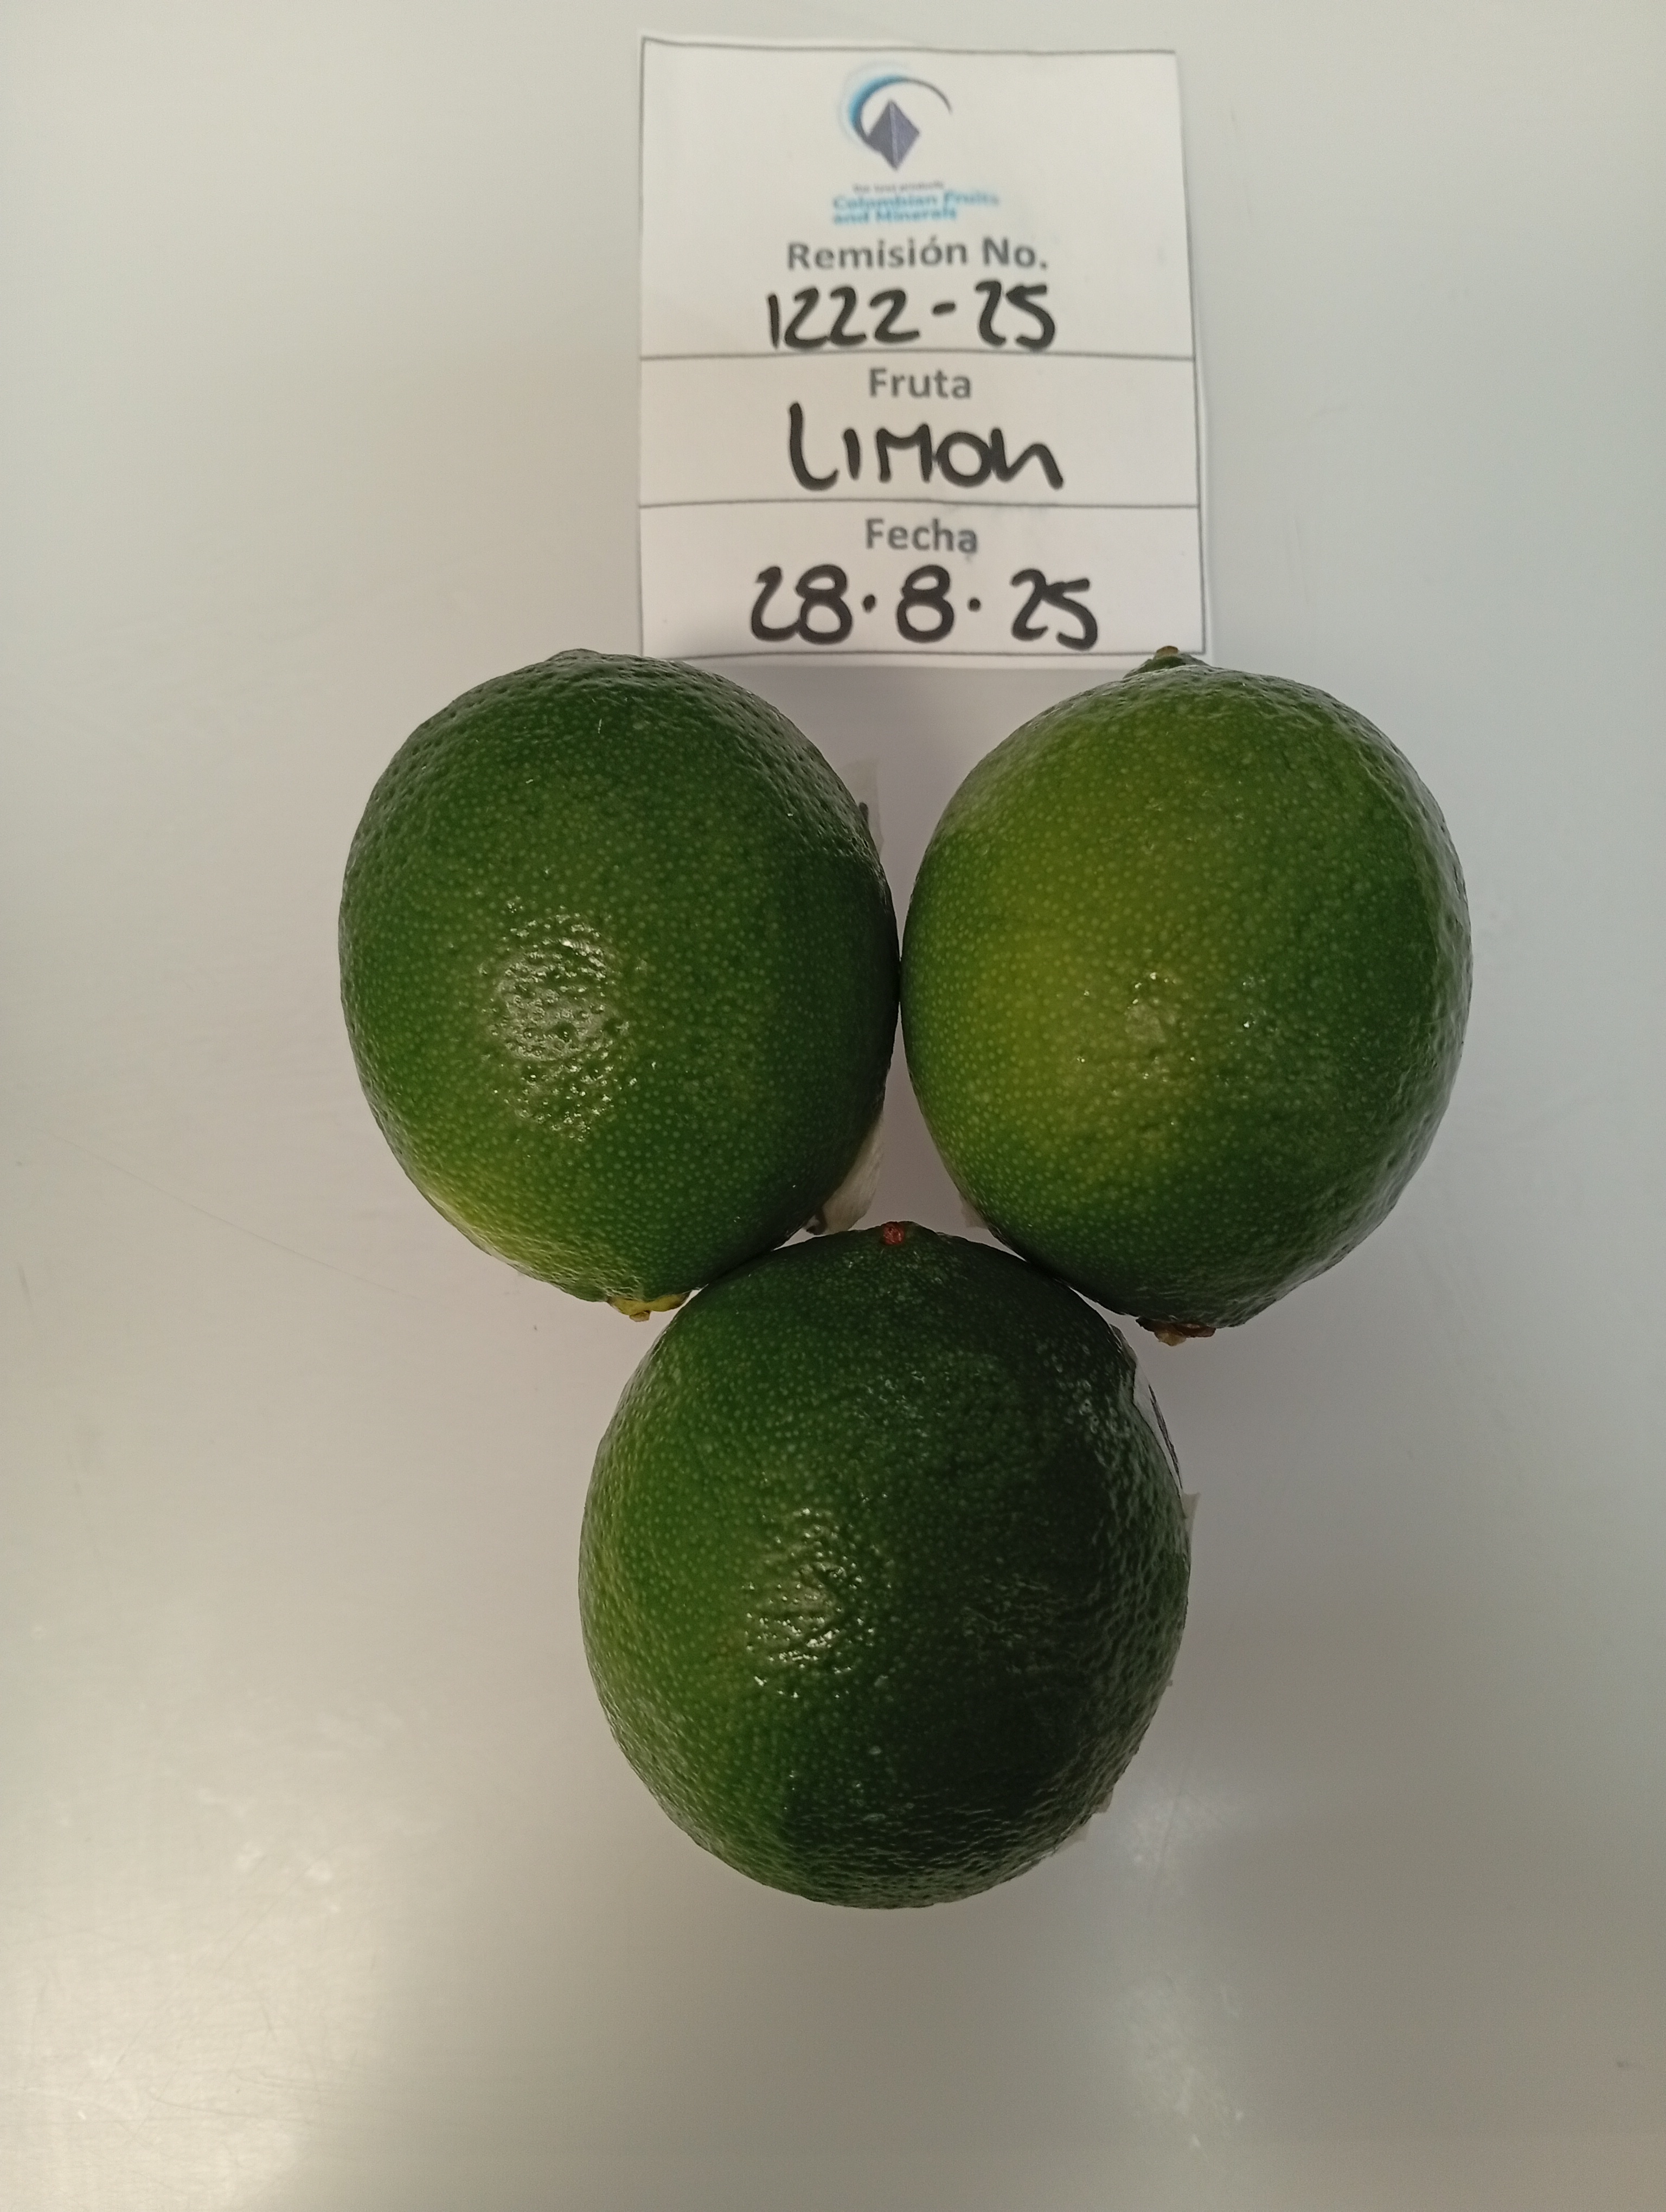 Colombian Fruits
and Minerals
Remisión No.
1222-25
Fruta
LIMON
Fecha
28.8.25